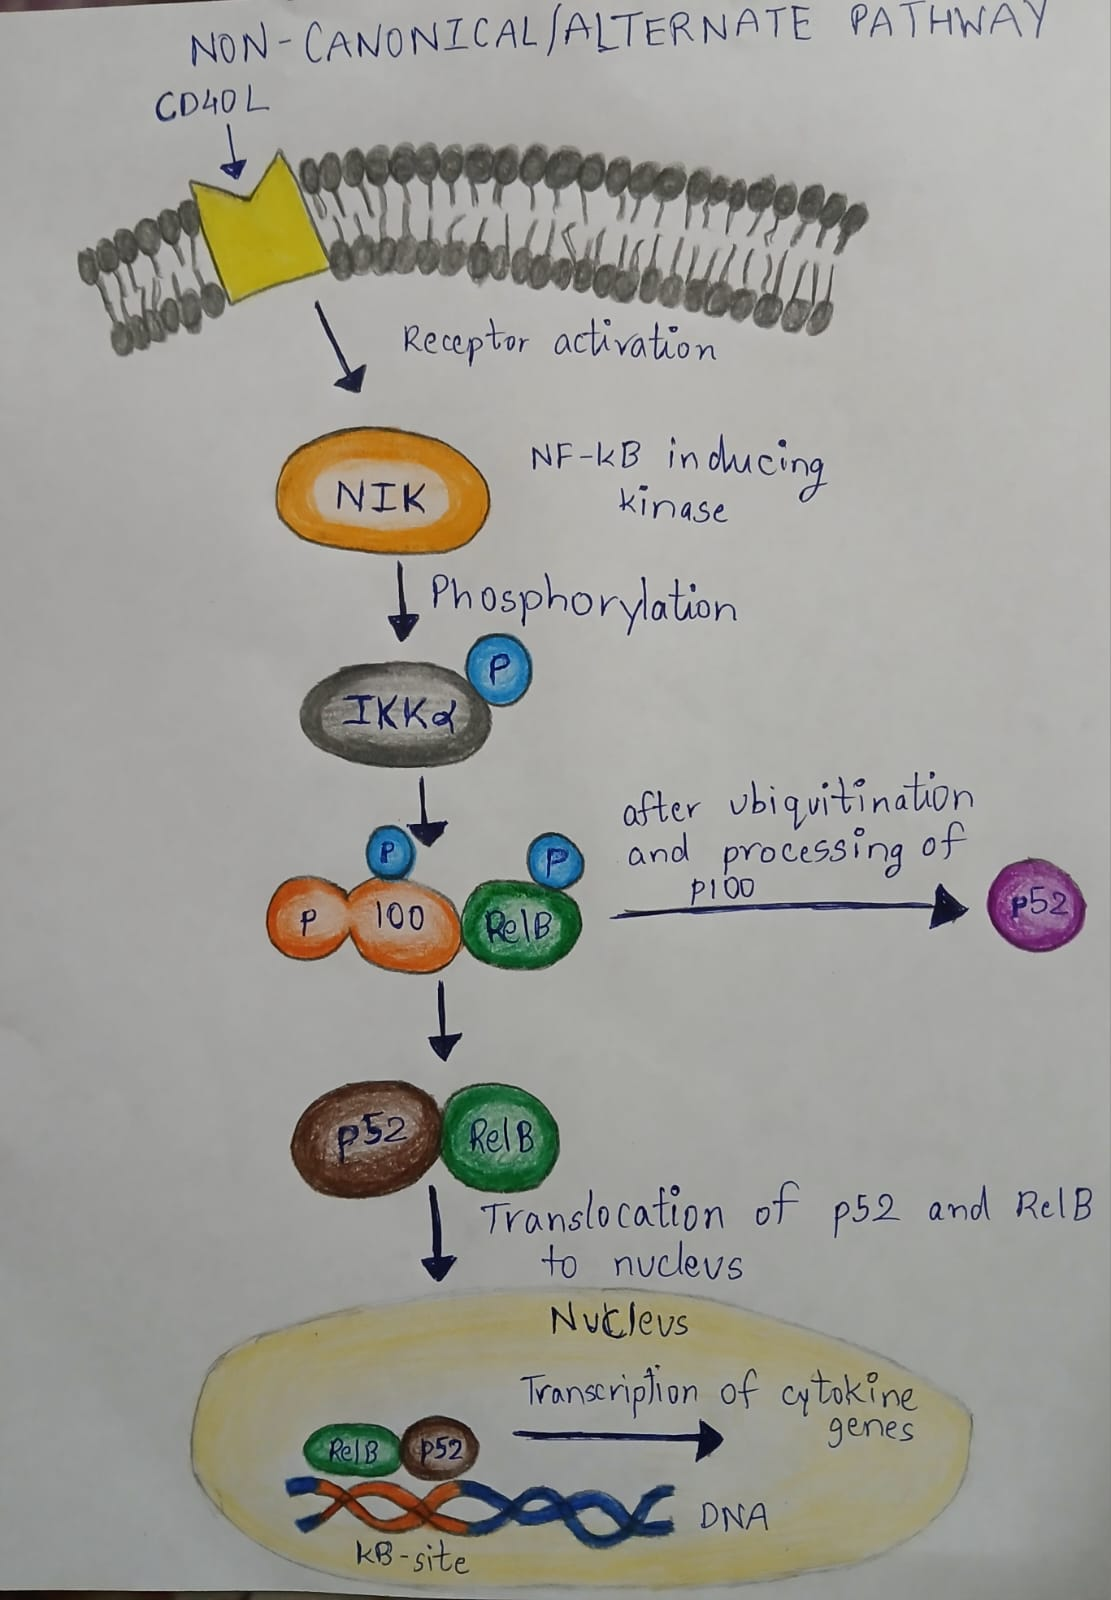 NON-CANONICAL/ALTERNATE PATHWAY
CD40L
Receptor activation
NIK
NF-kB inducing
kinase
Phosphorylation
P
IKKα
after ubiquitination
and processing of
P100
P
P
P 100 RelB
p52
p52 RelB
Translocation of p52 and RelB
to nucleus
Nucleus
Transcription of cytokine
genes
RelB p52
DNA
kB-site